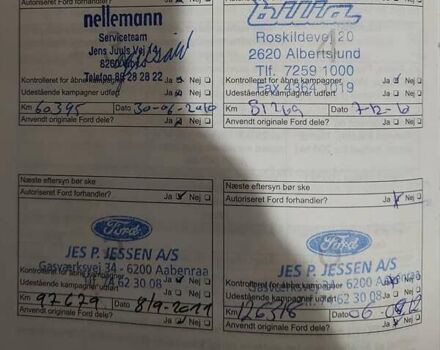 nellemann
Serviceteam
Jens Juuls Vej
Telefon 86 28 28 22
Kontrolleret for åbne kampagner Ja Nej
Udestående kampagner udført Ja Nej
Km 60395 Dato
Anvendt originale Ford dele? Ja Nej
Roskildevej 20
2620 Albertslund
Tlf. 7259 1000
Fax 4364 1019
Kontrolleret for åbne kampagner Ja Nej
Udestående kampagner udført Ja Nej
Km 81269 Dato 7-12-10
Anvendt originale Ford dele? Ja Nej
Næste eftersyn bør ske
Autoriseret Ford forhandler? Ja Nej
Ford
JES P. JESSEN A/S
Gasværksvej 34 - 6200 Aabenraa
Kontrolleret for åbne kampagner Ja Nej
Tlf. 74 62 30 08
Udestående kampagner udført Ja Nej
Km 97679 Dato 8/9-2011
Anvendt originale Ford dele? Ja Nej
Næste eftersyn bør ske
Autoriseret Ford forhandler? Ja Nej
Ford
JES P. JESSEN A/S
Aabenraa
Kontrolleret for åbne kampagner Ja Nej
62 30 08
Udestående kampagner udført Ja Nej
Km Dato
Anvendt originale Ford dele? Ja Nej